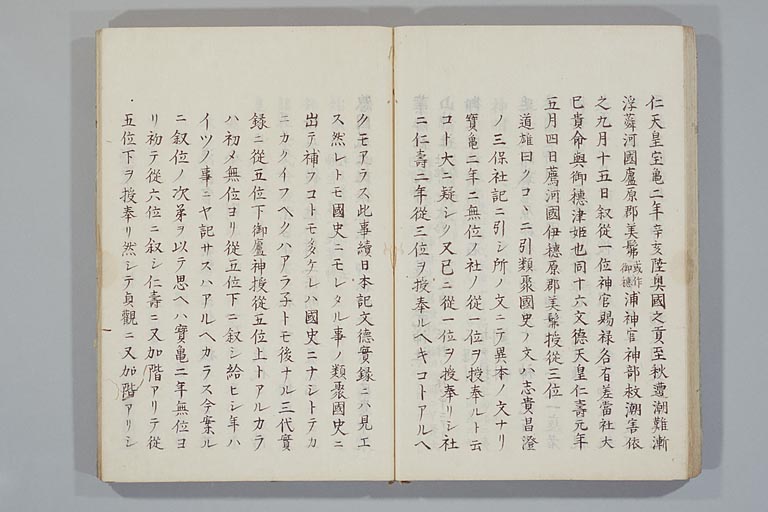 仁天皇宝亀二年辛亥陸奥國之貢至秋遭潮難漸
浮蕣河國廬原郡美髴或作御穂浦神官神部救潮害依
之九月十五日叙從一位神官賜禄各有差當社大
巳貴命與御穂津姫也同十六文德天皇仁壽元年
五月四日薦河國伊穂原郡美髴授從三位
道雄曰クコヽニ引類聚國史ノ文ハ志貴昌澄
ノ三保社記ニ引シ所ノ文ニテ異本ノ文ナリ
寶亀二年ニ無位ノ社ノ從一位ヲ授奉ルト云
コト大ニ疑シク又已ニ從一位ヲ授奉リシ社
ニ仁壽二年從三位ヲ授奉ルヘキコトアルヘ
クモアラス此事續日本記文德實録ニハ見エ
ス然レトモ國史ニモレタル事ノ類聚國史ニ
出テ補フコトモ多ケレハ國史ニナシトテカ
ニカクイフヘクハアラ子トモ後ナル三代實
録ニ從五位下御廬神授從五位上トアルカラ
ハ初メ無位ヨリ從五位下ニ叙シ給ヒシ年ハ
イツノ事ニヤ記サスハアルヘカラス今案ル
ニ叙位ノ次第ヲ以テ思ヘハ寶亀二年無位ヨ
リ初テ從六位ニ叙シ仁壽ニ又加階アリテ從
五位下ヲ授奉リ然シテ貞觀ニ又加階アリシ